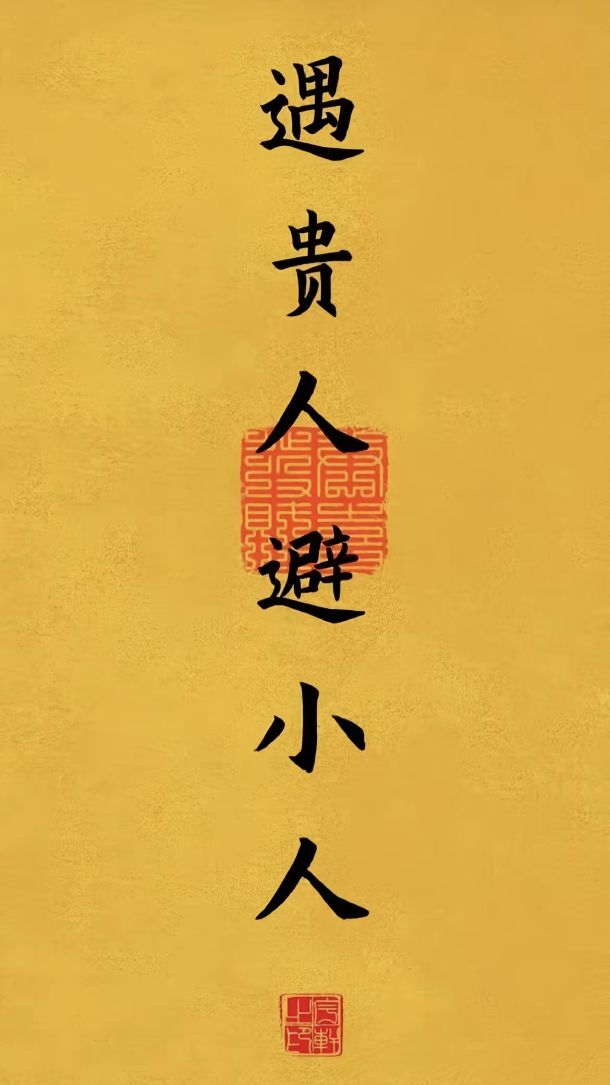 遇贵人避小人